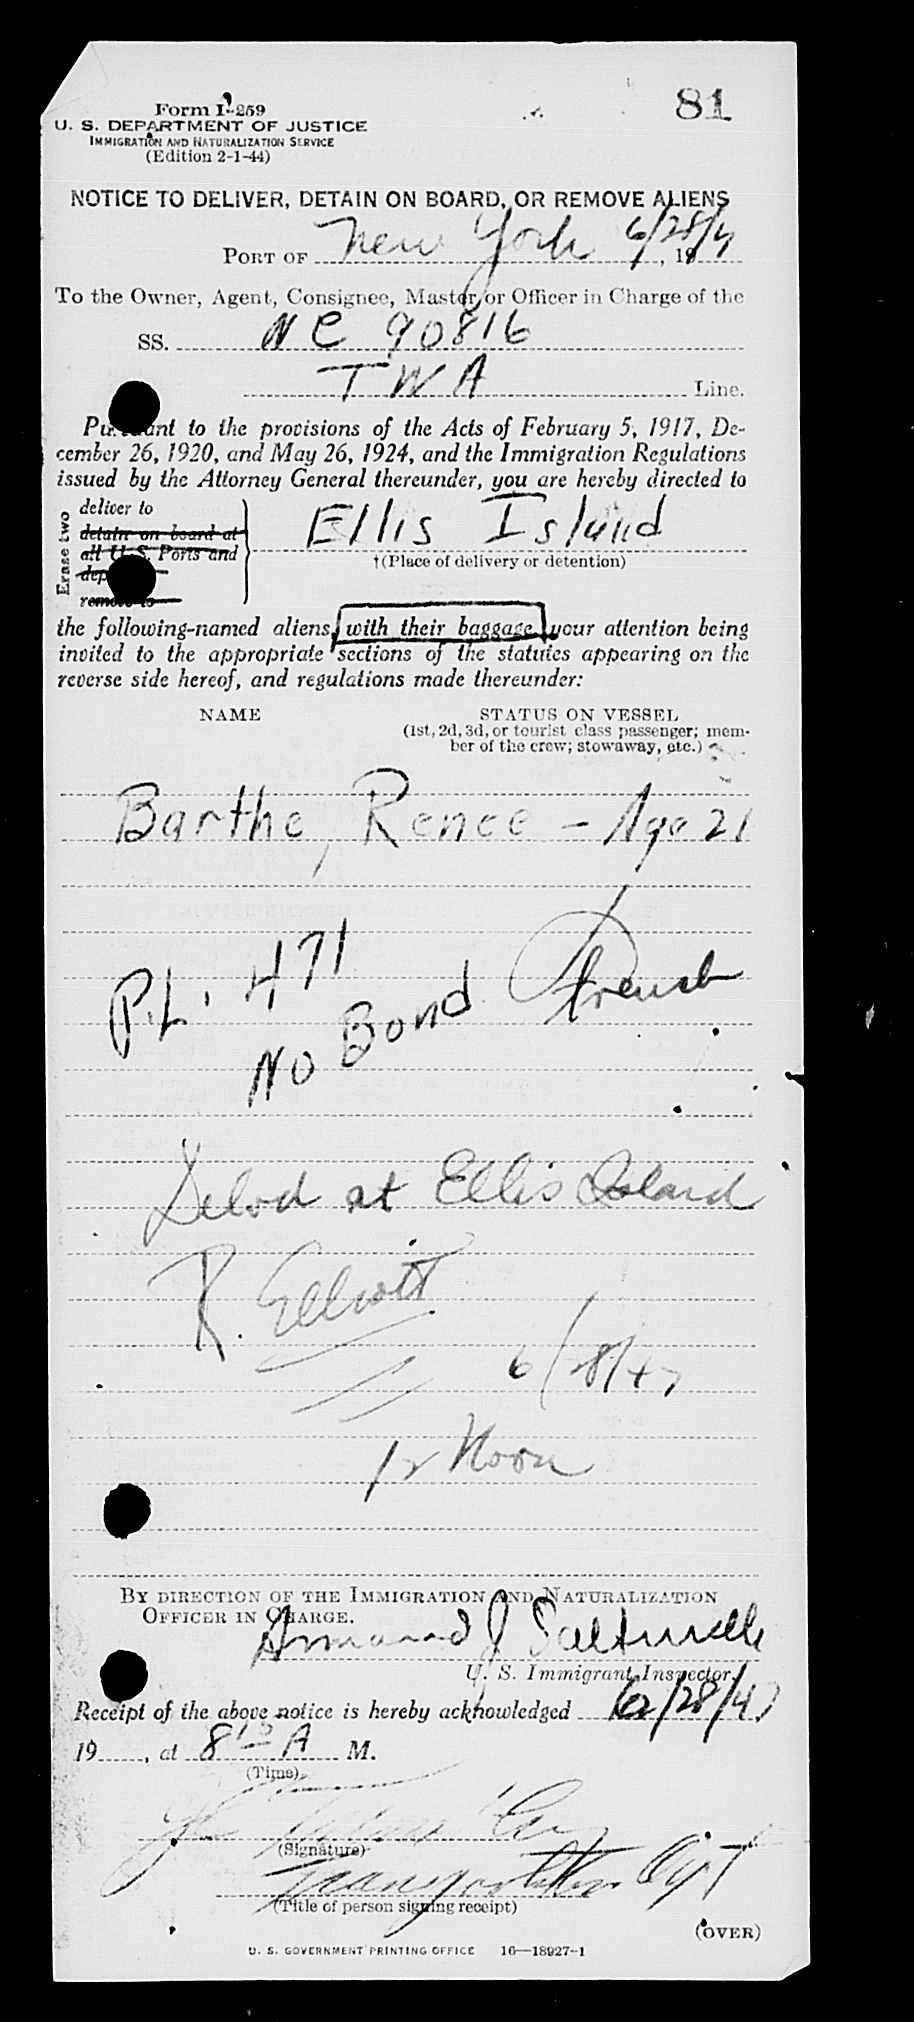 81
Form I-259
U. S. DEPARTMENT OF JUSTICE
IMMIGRATION AND NATURALIZATION SERVICE
(Edition 2-1-44)
NOTICE TO DELIVER, DETAIN ON BOARD, OR REMOVE ALIENS
PORT OF New York 6/28/47, 19
To the Owner, Agent, Consignee, Master, or Officer in Charge of the
SS. NC 90816
TWA Line.
Pursuant to the provisions of the Acts of February 5, 1917, De-
cember 26, 1920, and May 26, 1924, and the Immigration Regulations
issued by the Attorney General thereunder, you are hereby directed to
Erase two
deliver to
detain on board at
all U. S. Ports and
remove to
Ellis Island
†(Place of delivery or detention)
the following-named aliens, with their baggage, your attention being
invited to the appropriate sections of the statutes appearing on the
reverse side hereof, and regulations made thereunder:
NAME STATUS ON VESSEL
(1st, 2d, 3d, or tourist class passenger; mem-
ber of the crew; stowaway, etc.)
Barthe, Renee - Age 21
French
P.L. 471
No Bond
Delvd at Ellis Island
R. Elliott
6/28/47
12 Noon
BY DIRECTION OF THE IMMIGRATION AND NATURALIZATION
OFFICER IN CHARGE.
Armand J
U. S. Immigrant Inspector.
Receipt of the above notice is hereby acknowledged 6/28/47
19, at 8 15 A M.
(Time)
(Signature)
Transportation Agt
(Title of person signing receipt)
(OVER)
U. S. GOVERNMENT PRINTING OFFICE 16—18927-1